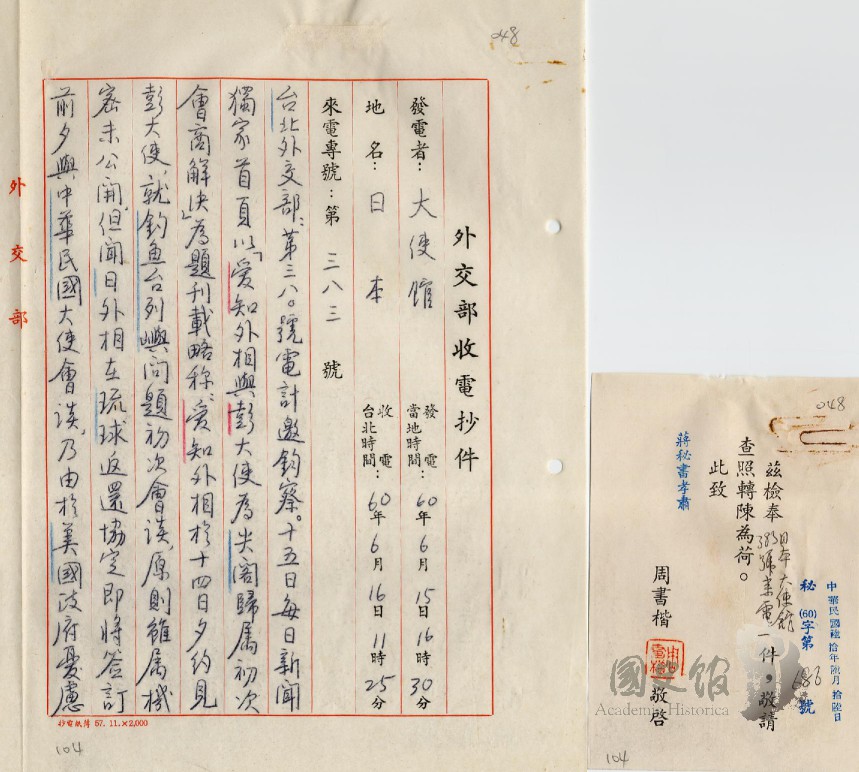 048
外交部收電抄件
發電者：大使館
發電當地時間：60年6月15日16時30分
地名：日本
收電台北時間：60年6月16日11時25分
來電專號：第三八三號
台北外交部：第三八〇號電計邀鈞察。十五日每日新聞
獨家首頁以「愛知外相與彭大使為尖閣歸屬初次
會商解決」為題刊載略稱：愛知外相於十四日夕約見
彭大使，就釣魚台列嶼問題初次會談，原則雖屬機
密未公開，但聞日外相在琉球返還協定即將簽訂
前夕與中華民國大使會談，乃由於美國政府憂慮
外交部
抄電紙博 57.11.×2,000
104
048
茲檢奉日本大使館383號來電一件，敬請
查照轉陳為荷。
此致
蔣秘書孝肅
周書楷
敬啓
中華民國陸拾年陸月拾陸日
秘(60)字第686號
國史館
Academia Historica
104